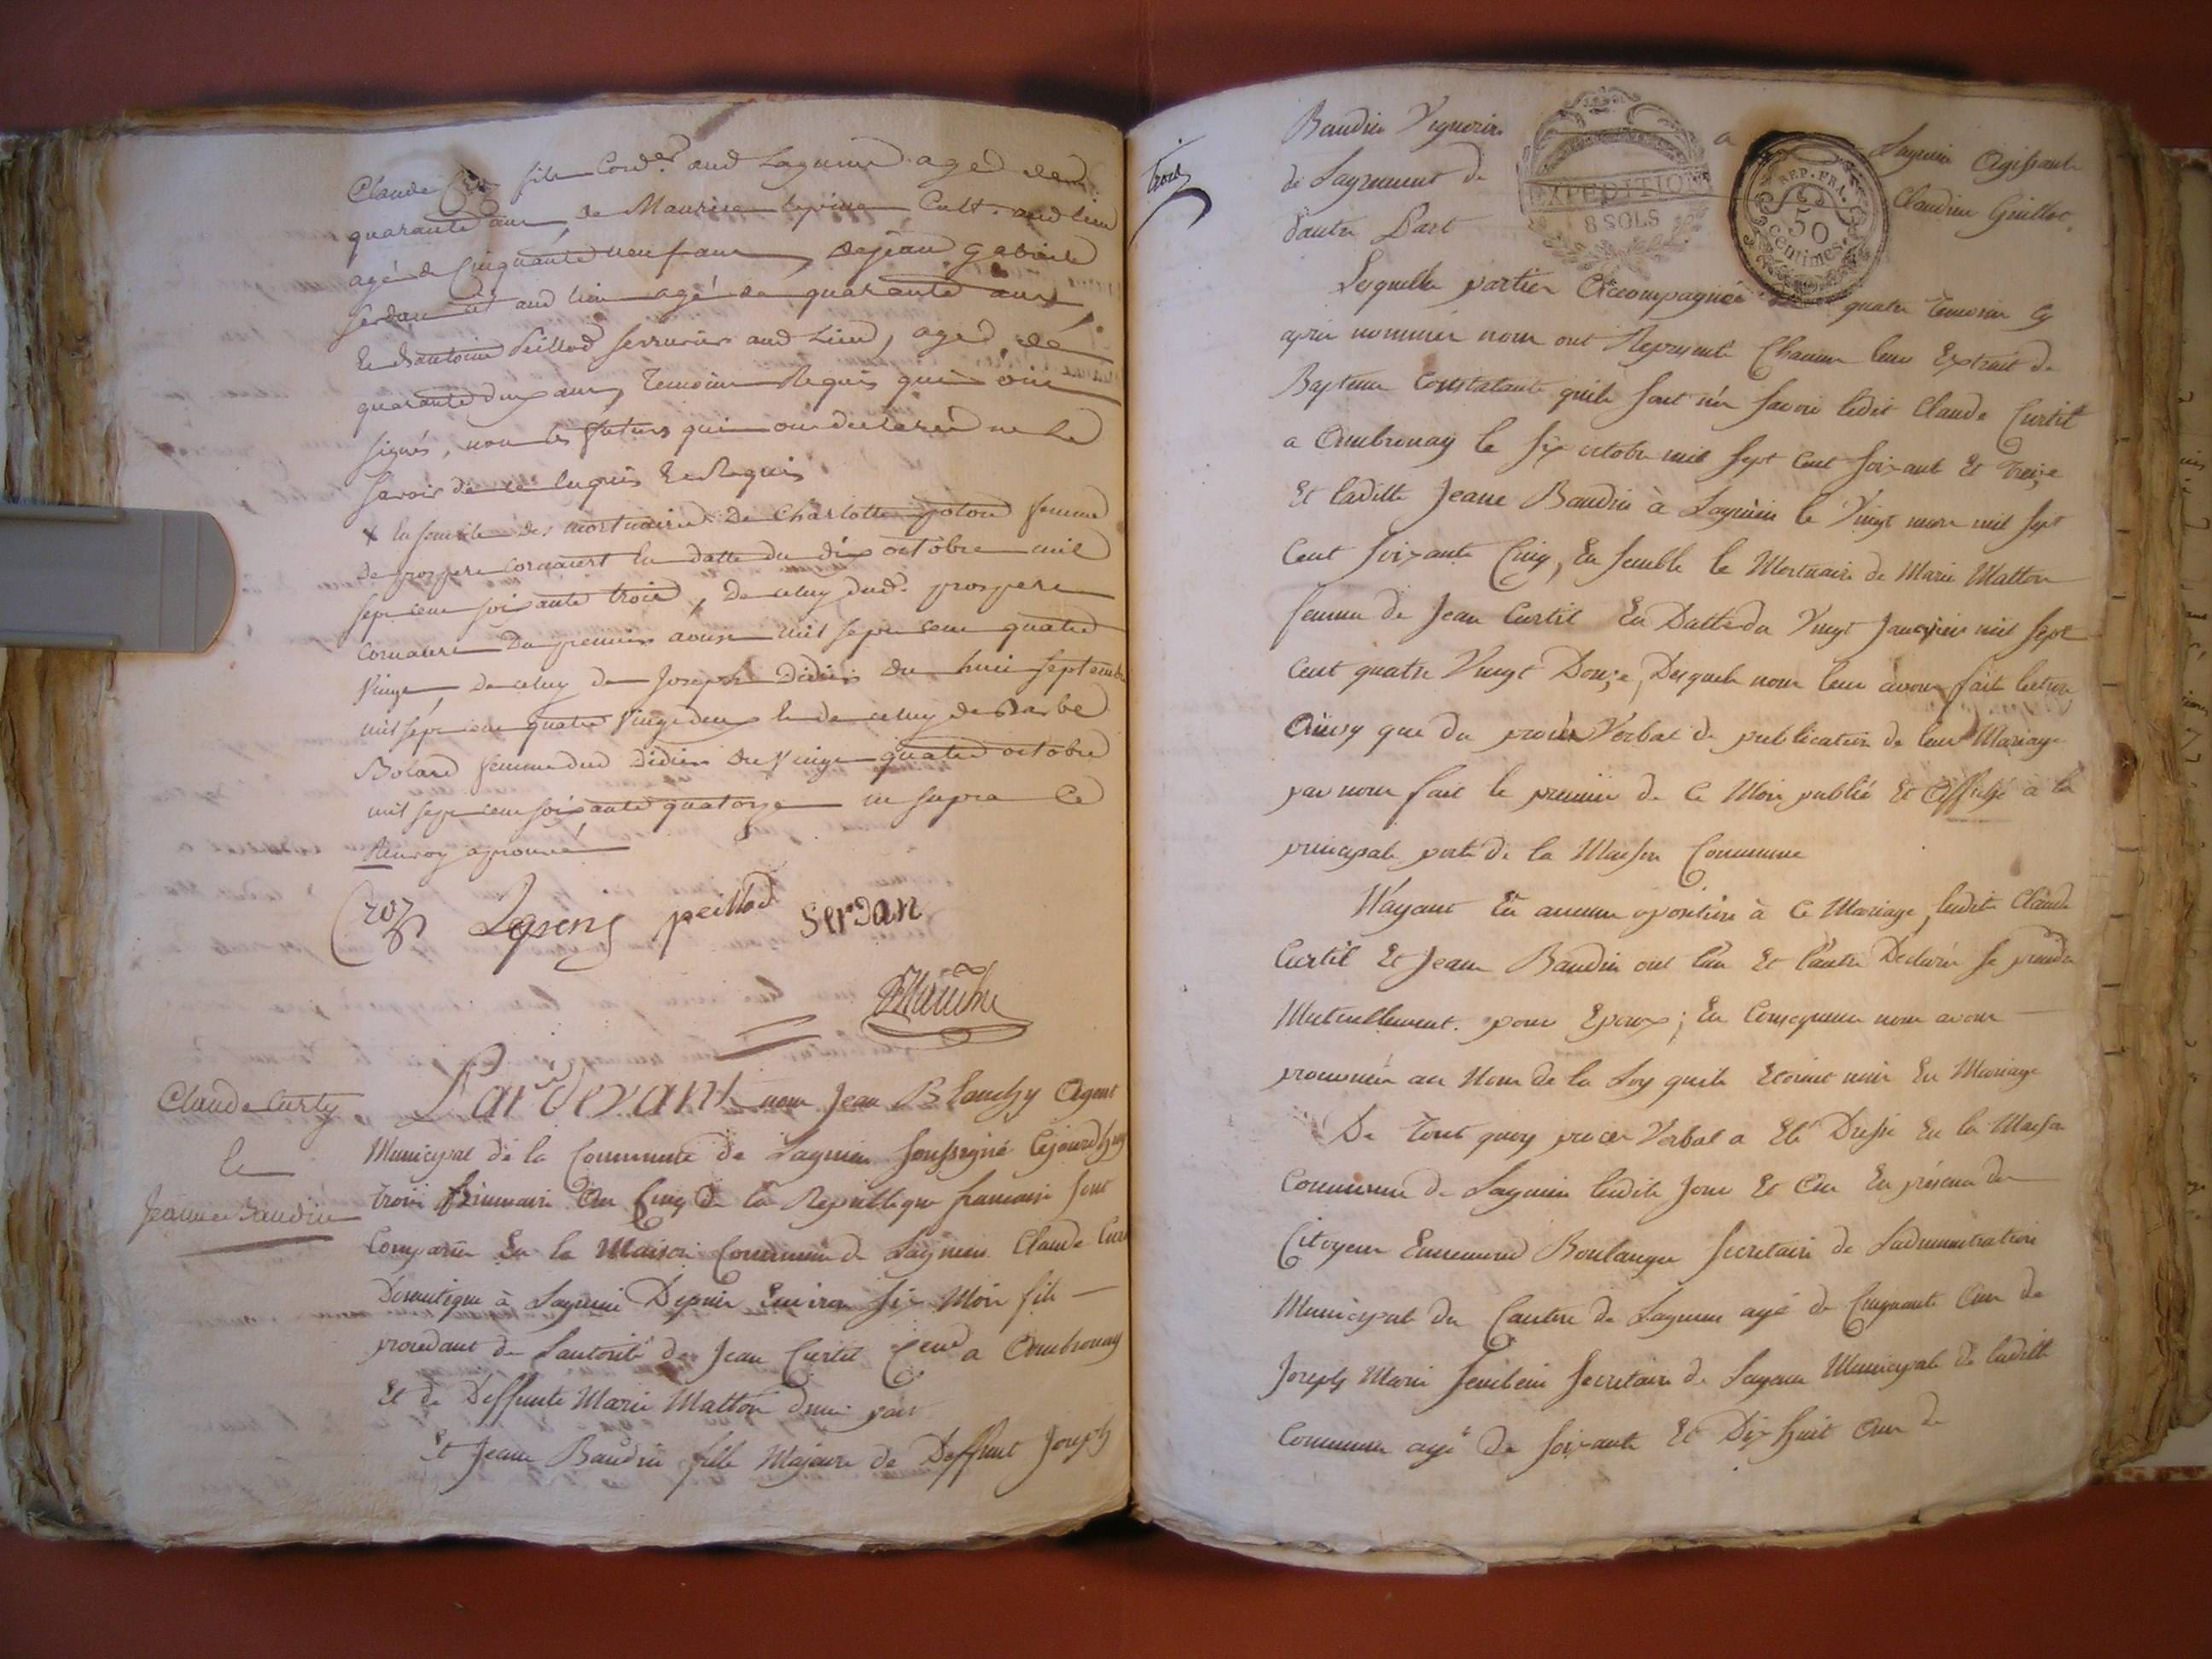 Claude Croz fils Cord.er aud Lagnieu agé de
quarante ans, de Maurice lepine Cult. aud lieu
agé de Cinquante neuf ans, de jean gabriel
serdan aud lieu agé de quarante ans
Et d'antoine peillod serrurier aud Lieu, agé de
quarante deux ans, Temoins Requis qui ont
signés, non les futurs qui ont declaré ne le
savoir de ce enquis Et Requis
x Ensemble des mortuaires De Charlotte
femme
De prospere cornauert En datte du dix octobre mil
sept cent soixante trois, De celuy dud. prospere
Du premier aoust mil sept cent quatre
Vingt, de celuy de Joseph Didier du huit septembre
mil sept cent quatre Vingt deux Et de celuy de Barbe
Bolard femme dud Didier du Vingt quatre octobre
mil sept cent soixante quatorze ut supra Ce
Renvoy aprouvé
Croz Lepine peillod Serdan
Blanchy
Claude Curty
Et
Jeanne Baudin
Pardevant nous Jean Blanchy Agent
Municipal de la Commune de Lagnieu soussigné Cejourdhuy
trois frimaire An Cinq De la Republique francaise sont
Comparus En la Maison Commune de Lagnieu Claude Cur
Domestique à Lagnieu Depuis Environ six Mois fils
procedant de Lautorité de Jean Curtil a Ambronay
Et de Deffunte Marie Matton d'une part
Et Jeane Baudin fille Majeure de Deffunt Joseph
trois
Baudin Vigneron a Lagnieu Agissante
de Lagrement de Claudine Guillot
d'autre Part
EXPEDITION
8 SOLS
REP. FRA.
50
centimes
Lesquelles parties Accompagnées quatre temoins cy
après nommés nous ont Representé Chacun leur Extrait de
Baptême Constatant quils sont nés savoir ledit Claude Curtil
a Ambronay le six octobre mil sept Cent soixante Et Treize
Et laditte Jeane Baudin à Lagnieu le Vingt mars mil sept
Cent soixante Cinq, En semble le Mortuaire de Marie Matton
femme de Jean Curtil En Datte du Vingt Janvier mil sept
Cent quatre Vingt Douze, Desquels nous leur avons fait lecture
Ainsy que du procès Verbal de publication de leur Mariage
par nous fait le premier de Ce Mois publié Et Affiché à la
principale porte de la Maison Commune
N'ayant Eû aucune oposition à Ce Mariage, ledit Claude
Curtil Et Jeane Baudin ont l'un Et l'autre Declaré se prendre
Mutuellement pour Epoux; En Consequence nous avons
prononcés au Nom de la Loy quils Etoient unis En Mariage
De Tout quoy procès Verbal a Eté Dressé En la Maison
Commune de Lagnieu ledit Jour Et An En présence des
Citoyens Ennemond Boulanger secretaire de Ladministration
Municipal du Canton de Lagnieu agé de Cinquante Ans de
Joseph Marie secretaire de Lagent Municipale de laditte
Commune agé De soixante Et Dix huit Ans de